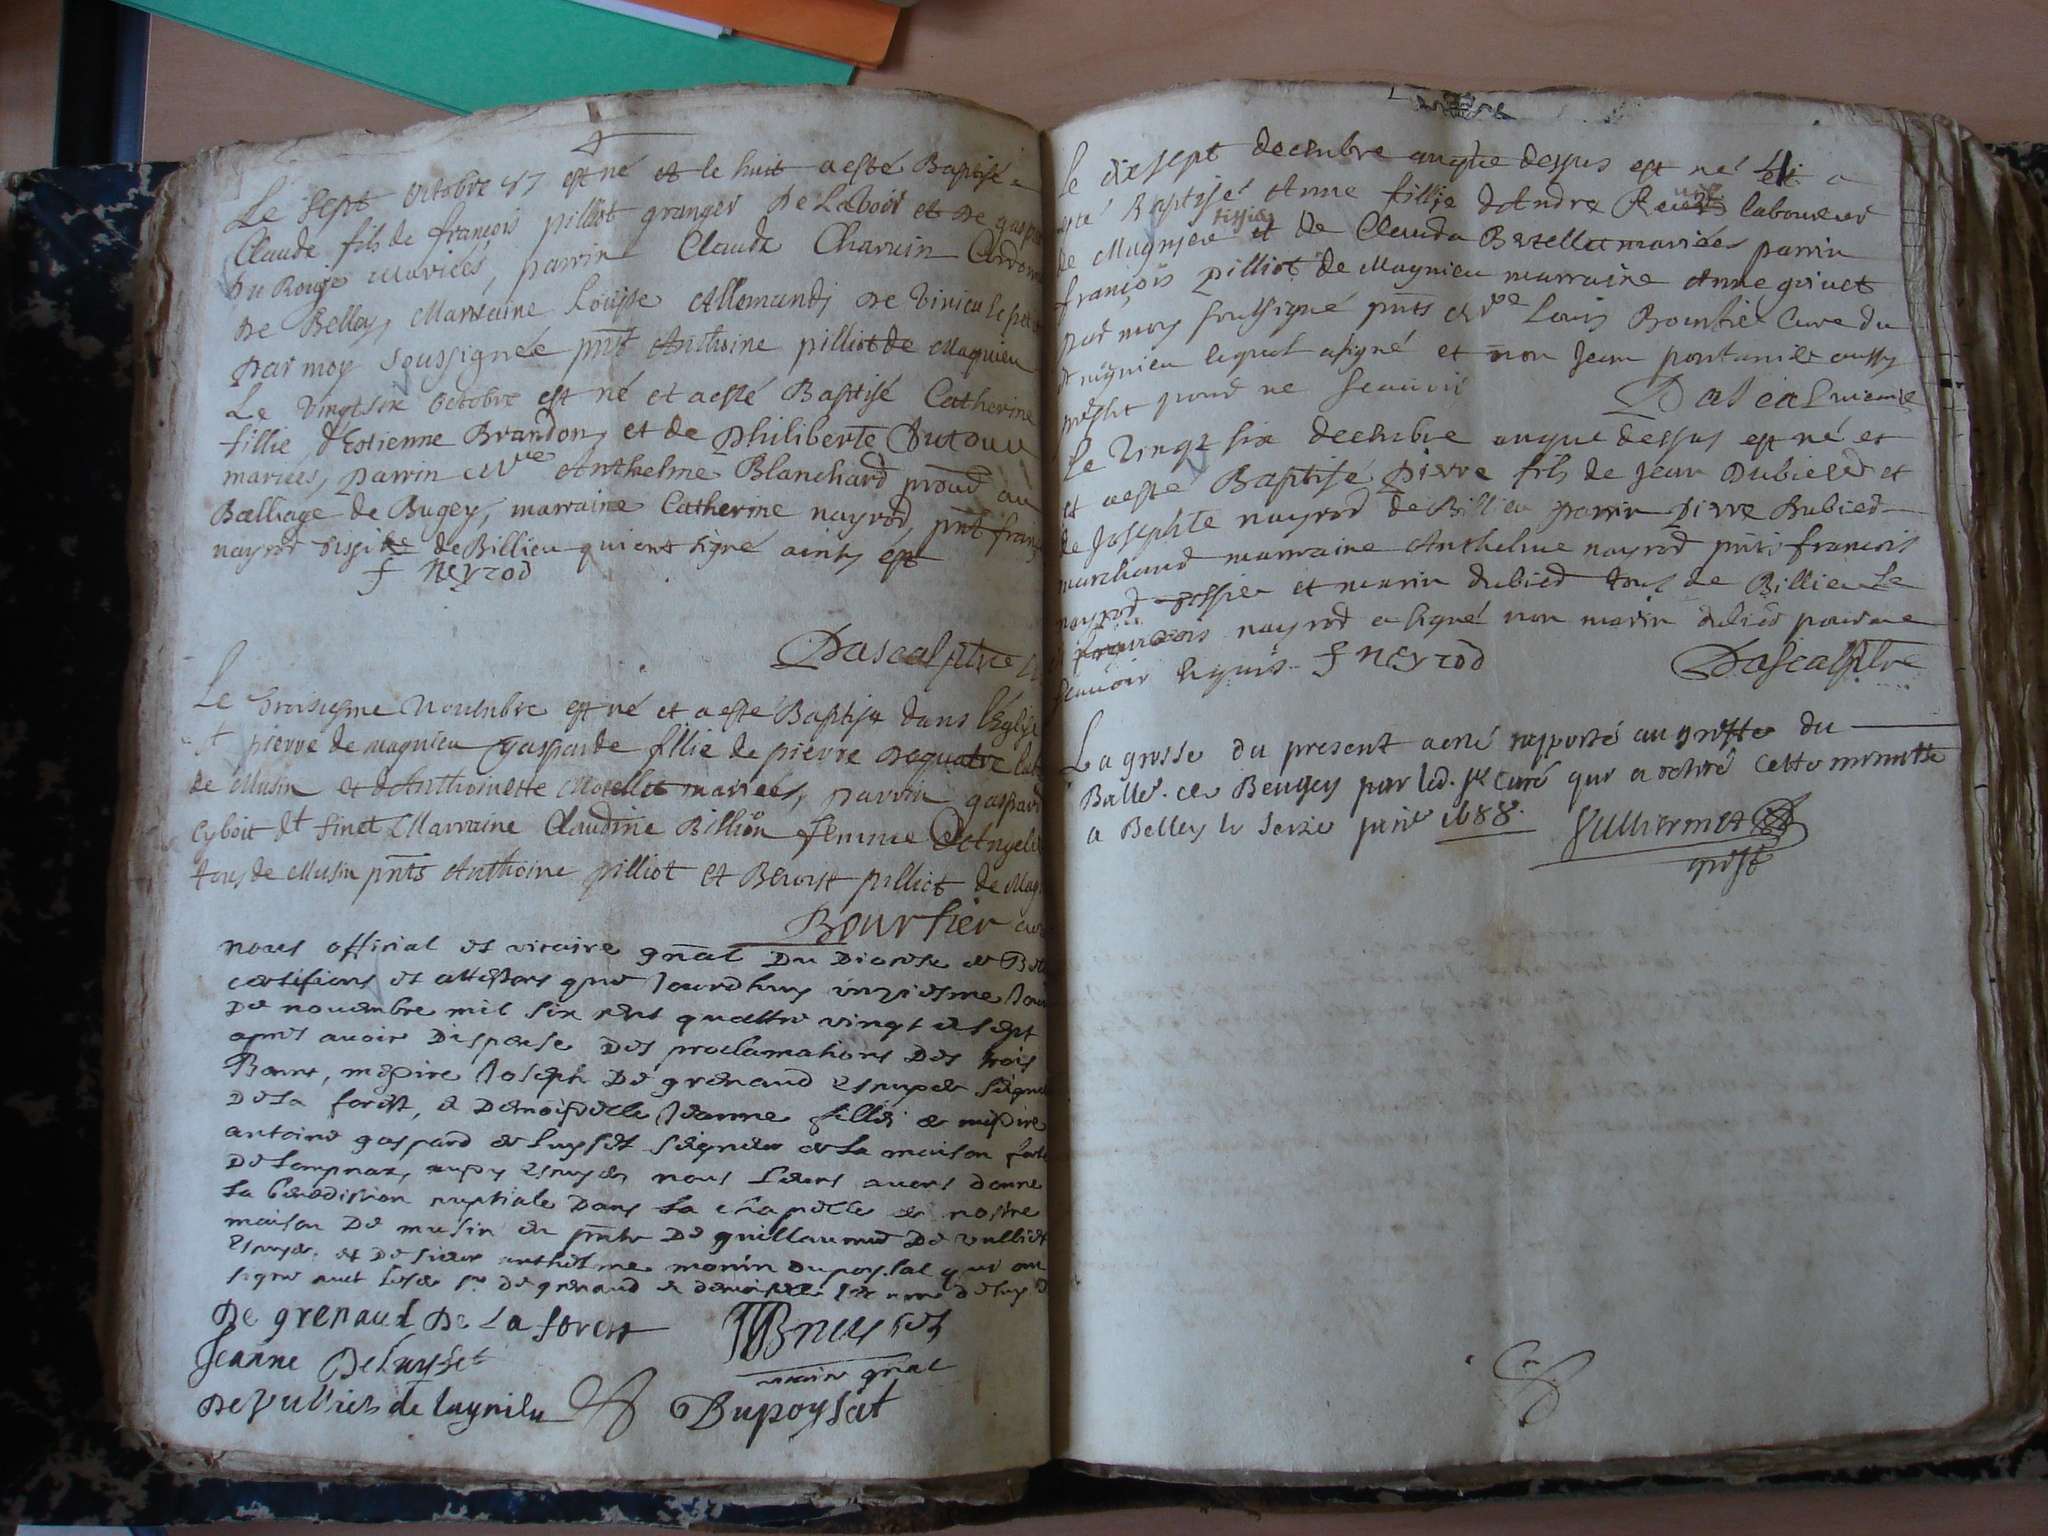 Le sept octobre 87 est né et le huit a esté Baptisé
Claude fils de françois pilliot granger De Laboir et De gaspar
Du Rouge mariées, parrin Claude Charuin Cordonn
De Belley, Marraine Louise Allemand, De Virieu le petit
par moy soussignée pnt Anthoine pilliot de Magnieu
Le vingtsix octobre est né et a esté Baptisé Catherine
fillie d'Estienne Brandon, et de philiberte
mariées, parrin Anthelme Blanchard procud au
Balliage de Bugey, marraine Catherine nayrod, pnt franc
nayrod tissier de Billieu qui ont signé ainsy est
f neyrod
Pascal ptre
Le troisiesme Novembre est né et a esté Baptisé dans l'Eglise
st pierre de magnieu gasparde fillie de pierre Dequatre lab
de Musin et d'Anthoinette Morellet mariées, parrin gaspard
Cyboit dt finet Marraine Claudine Billion femme d'Angeli
tous de Musin pnts Anthoine pilliot et Benoist pilliot de Mag
Boursier cur
nous official et vicaire gnal Du Diocese de Bel
certifions et attestons que Jourdhuy unziesme Jour
De novembre mil six cens quattre vingt et sept
apres avoir Dispense Des proclamations Des trois
Banns, messire Joseph De grenaud escuyer seigne
De la forest, et Demoiselle Jeanne fillie de messire
antoine gaspard de Luyset seigneur de La maison forte
De escuyer nous Leurs avons donne
La benediction nuptiale Dans La chapelle de nostre
maison De musin en pnce De guillaume De vulliet
Escuyer et De sieur anthelme monin Dupoysat qui ont
signe avec Led sr De grenaud et demoiselle Jeanne deluys
De grenaud De La forest
vicaire gnal
Jeanne DeLuyset
De Vulliet de laynilu Dupoysat
Le dix sept decembre an que dessus est né et a
esté Baptisé Anne fillie d'Andre laboureur
tissier
de Magnieu et de Clauda Berellet mariées parrin
françois pilliot de Magnieu marraine Anne goiuet
par moy soussigné pnts Louis Boursier Cure du
dt magnieu lequel a signé et non Jean aussy
present pour ne scauoir
Pascal vicaire
Le vingt six decembre an que dessus est né et
et a esté Baptisé pierre fils de Jean Dubied et
de Josephte nayrod de Billieu parrin pierre Dubied
marchand marraine Anthelme nayrod pnts françois
nayrod tissier et marin dubied tous de Billieu Le
dt françois nayrod a signé non marin dubied pour ne
scauoir requis f neyrod Pascal ptre
La grosse du present a esté rapporté au greffe du
Balle. de Beugey par led. sr Curé qui a retiré cette minutte
a Belley le seize janv 1688.
greff